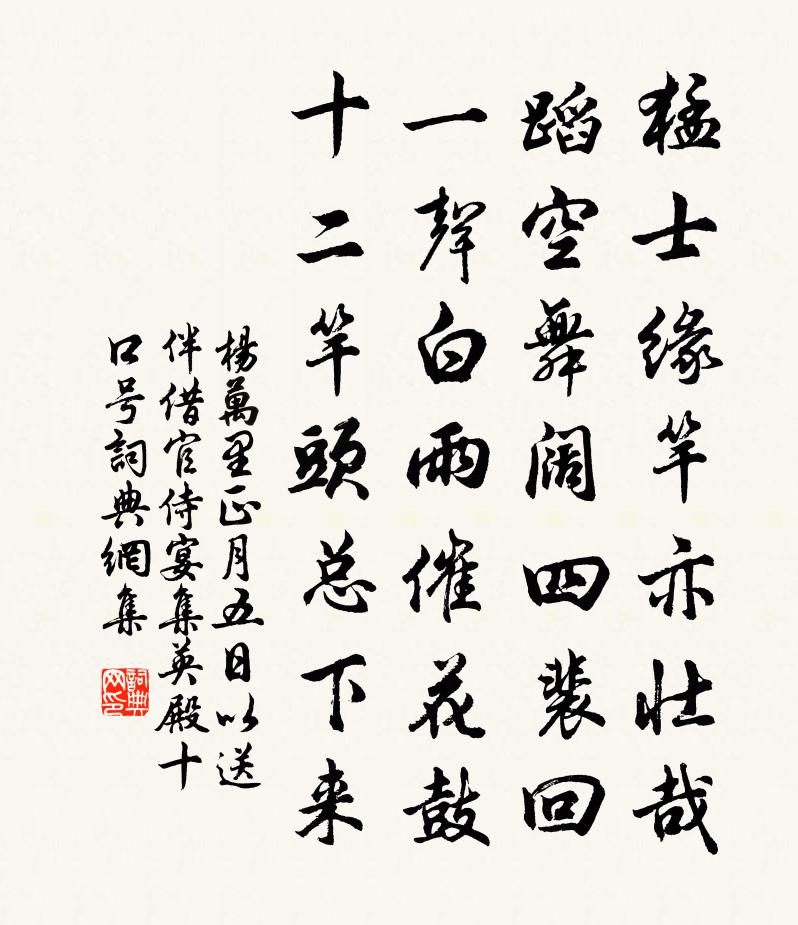 猛士缘竿亦壮哉
蹈空舞阔四裴回
一聲白雨催花鼓
十二竿頭总下来
楊萬里正月五日以送
伴借官侍宴集英殿十
口号詞典網集
詞典网印